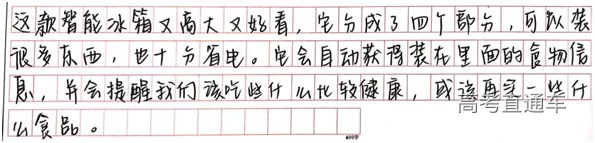 这款智能冰箱又高大又好看，它分成了四个部分，可以装
很多东西，也十分省电。它会自动获得装在里面的食物信
息，并会提醒我们该吃些什么比较健康，或该再买一些什
么食品。
高考直通车
400字